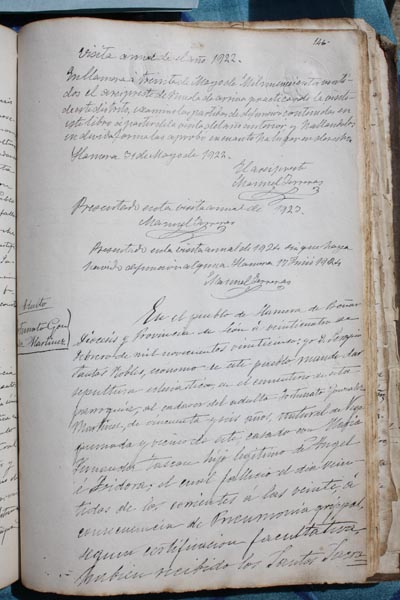 146
Visita anual del año 1922.
En Llamera á treinta de Mayo de Mil novecientos veinti-
dos el arcipreste de practicando la visita
de este distrito, examinó las partidas de difuntos contenidas en
este libro á partir de la visita del año anterior, y hallandolas
en debida forma las aprobó en cuanto ha lugar en derecho
Llamera 30 Mayo de 1922.
El arcipreste
Manuel
Presentado en la visita anual de 1923.
Manuel
Presentado en la visita anual de 1924 sin que haya
havido defuncion alguna Llamera 17 Junio 1924
Manuel
Adulto
Fortunato Gonza
lez Martinez
En el pueblo de Llamera de Boñar
Diócesis y Provincia de León á veinticuatro de
Febrero de mil novecientos veinticinco; yo D.
Santos Robles, ecónomo de este pueblo mandé dar
sepultura eclesiástica, en el cementerio de esta
parroquia, al cadaver del adulto Fortunato González
Martinez, de cincuenta y seis años, natural de Vega
quemada y vecino de éste, casado con María
Fernanda Tascon hijo legítimo de Angel
é Isidora; el cual falleció el dia vein
tidos de los corrientes a las veinte, a
consecuencia de Pneumonía grippal,
segun certificación facultativa,
habien recibido los Santos Sacra